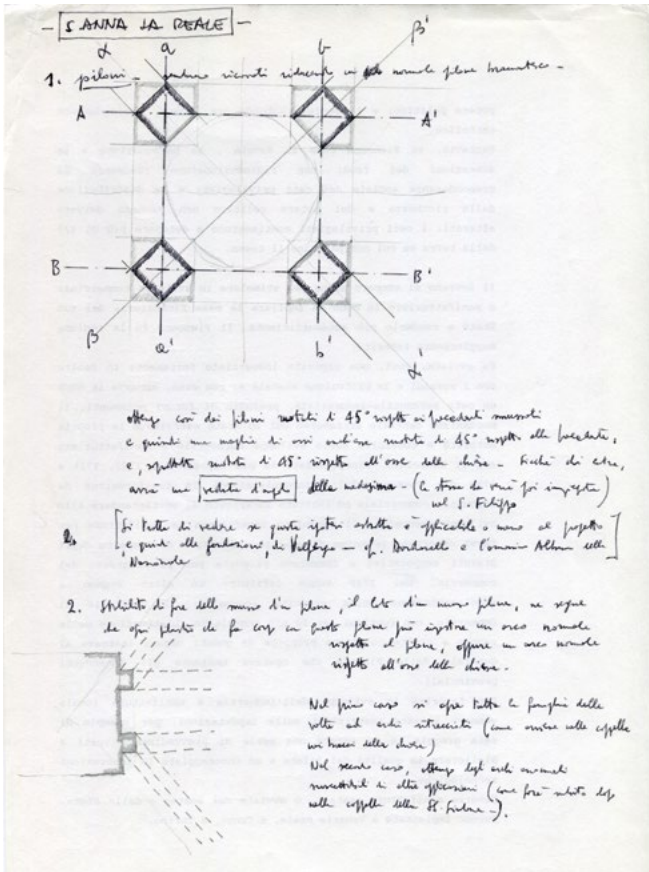 - S ANNA LA REALE -
α a b β'
1. piloni - riscontri riducendo un normale pilone bramantesco -
A A'
B B'
β a' b' α'
ottengo così dei piloni rotati di 45° rispetto ai precedenti
e quindi una maglia di assi anch'essa rotata di 45° rispetto alla precedente,
e, soprattutto rotata di 45° rispetto all'asse della chiesa. Sicché chi entra,
avrà una veduta d'angolo della medesima - (la stessa che verrà poi impiegata
nel S. Filippo
Si tratta di vedere se questa ipotesi astratta è applicabile o meno al progetto
e quindi alle fondazioni, di - cf. e l'ommino Album della
Nazionale
2. Stabilito di fare dello smusso d'un pilone, il lato d'un nuovo pilone, ne segue
che ogni che fa corpo con questo pilone può impostare un arco normale
rispetto al pilone, oppure un arco normale
rispetto all'asse della chiesa -
Nel primo caso si apre tutta la famiglia delle
volte ad archi intrecciati (come avviene nelle cappelle
della chiesa)
Nel secondo caso, ottengo degli archi anomali
suscettibili di altre applicazioni (come farà subito dopo
nella cappella della SS. Sindone -).